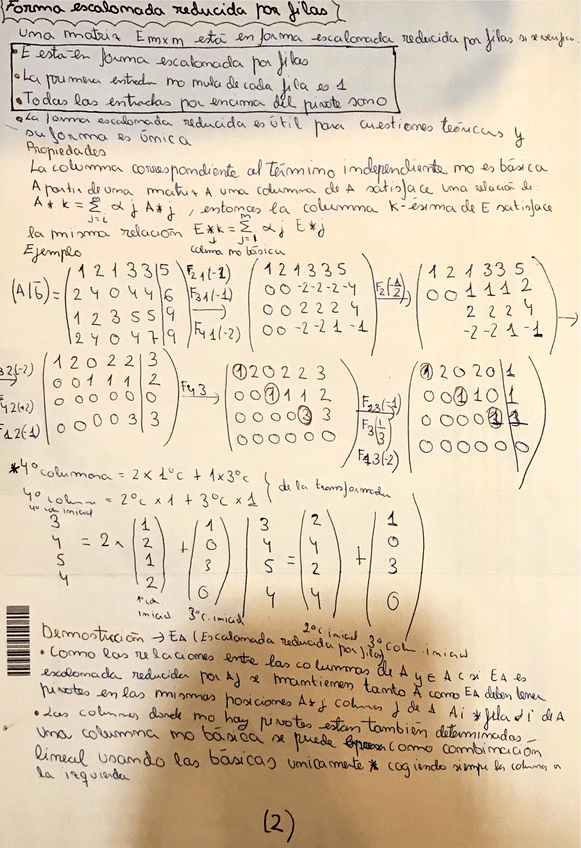 Forma escalonada reducida por filas
Una matriz E mxm está en forma escalonada reducida por filas si se verifica
• E está en forma escalonada por filas
• La primera entrada no nula de cada fila es 1
• Todas las entradas por encima del pivote son 0
• La forma escalonada reducida es útil para cuestiones teóricas y
su forma es única
Propiedades
La columna correspondiente al término independiente no es básica
A partir de una matriz A una columna de A satisface una relación
A * k = Σ αj A*j , entonces la columna k-ésima de E satisface
la misma relación E*k = Σ αj E*j
Ejemplo columna no básica
(A|b) = 1 2 1 3 3 | 5 F21(-2) 1 2 1 3 3 5 F2(-1/2) 1 2 1 3 3 5
2 4 0 4 4 | 6 F31(-1) 0 0 -2 -2 -2 -4 0 0 1 1 1 2
1 2 3 5 5 | 9 F41(-2) 0 0 2 2 2 4 2 2 2 4
2 4 0 4 7 | 9 0 0 -2 -2 1 -1 -2 -2 1 -1
32(-2) 1 2 0 2 2 | 3 F43 1 2 0 2 2 3 F23(-1) 1 2 0 2 0 | 1
42(+2) 0 0 1 1 1 | 2 0 0 1 1 1 2 F3(1/3) 0 0 1 1 0 | 1
12(-1) 0 0 0 0 0 | 0 0 0 0 0 3 3 F13(-2) 0 0 0 0 1 | 1
0 0 0 0 3 | 3 0 0 0 0 0 0 0 0 0 0 0 0
*4º columna = 2 x 1ºc + 1 x 3ºc
4º colum = 2ºc x 1 + 3ºc x 1 de la transformada
4º col inicial
3 1 1 3 2 1
4 = 2 x 2 + 0 4 = 4 + 0
5 1 3 5 2 3
4 2 0 4 4 0
1ª col inicial 3ºc. inicial 2ºc inicial 3º colum. inicial
Demostración → EA (Escalonada reducida por filas)
• Como las relaciones entre las columnas de A y EA si EA es
escalonada reducida por A se mantienen tanto A como EA deben tener
pivotes en las mismas posiciones A*j columna j de A Ai* fila i de A
• Las columnas donde no hay pivotes estan también determinadas
una columna no básica se puede como combinación
lineal usando las básicas unicamente * cogiendo siempre la columna a
la izquierda
(2)